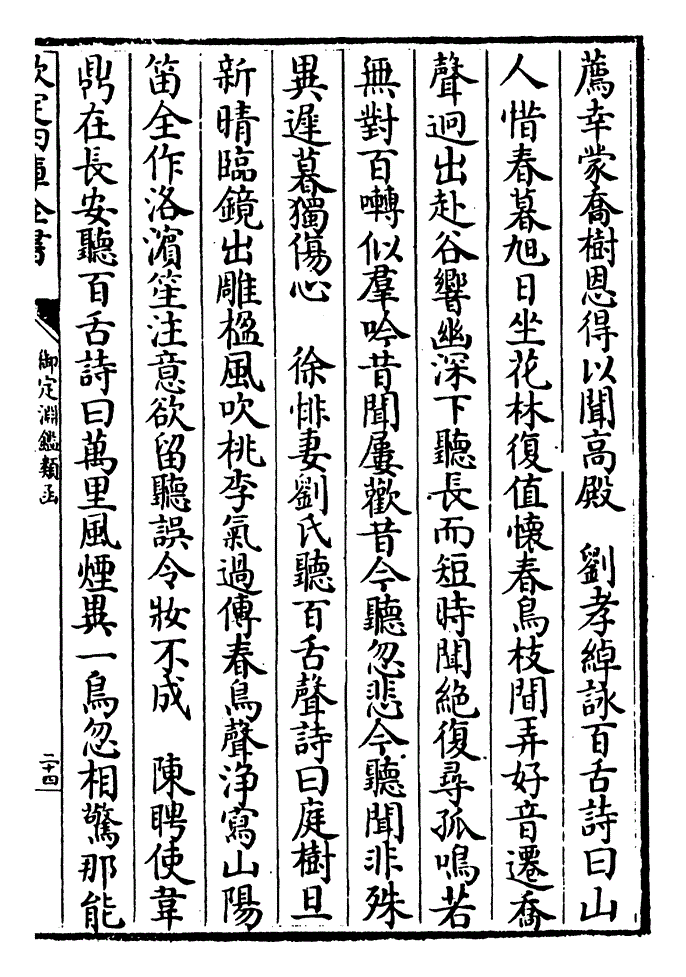 薦幸蒙喬樹恩得以聞高殿　劉孝綽詠百舌詩曰山
人惜春暮旭日坐花林復值懷春鳥枝間弄好音遷喬
聲迥出赴谷響幽深下聽長而短時聞絶復尋孤鳴若
無對百囀似羣吟昔聞屢歡昔今聽忽悲今聽聞非殊
異遲暮獨傷心　徐悱妻劉氏聽百舌聲詩曰庭樹旦
新晴臨鏡出雕楹風吹桃李氣過傳春鳥聲浄寫山陽
笛全作洛濱笙注意欲留聽誤令妝不成　陳聘使韋
鼎在長安聽百舌詩曰萬里風煙異一鳥忽相驚那能
欽定四庫全書
御定淵鑑類函
二十四